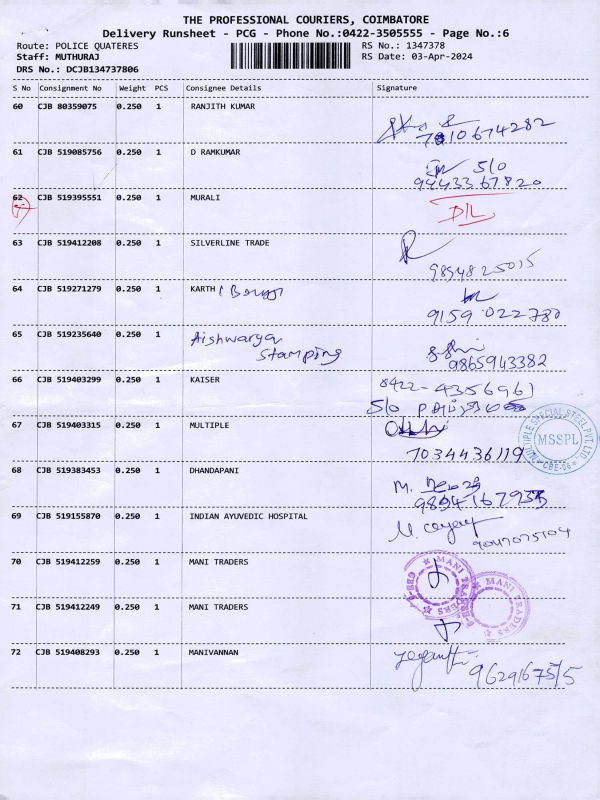 THE PROFESSIONAL COURIERS, COIMBATORE
Delivery Runsheet - PCG - Phone No.:0422-3505555 - Page No.:6
Route: POLICE QUATERES RS No.: 1347378
Staff: MUTHURAJ RS Date: 03-Apr-2024
DRS No.: DCJB134737806
S No Consignment No Weight PCS Consignee Details Signature
60 CJB 80359075 0.250 1 RANJITH KUMAR
61 CJB 519085756 0.250 1 D RAMKUMAR S/o
9443367820
62 CJB 519395551 0.250 1 MURALI D/L
63 CJB 519412208 0.250 1 SILVERLINE TRADE
9894825015
64 CJB 519271279 0.250 1 KARTH
9159 022780
65 CJB 519235640 0.250 1 Aishwarya
Stamping
9865943382
66 CJB 519403299 0.250 1 KAISER 0422-4356961
S/o
67 CJB 519403315 0.250 1 MULTIPLE
7034436119
MULTIPLE SPECIAL STEEL PVT. LTD.
MSSPL
CBE-06
68 CJB 519383453 0.250 1 DHANDAPANI M.
69 CJB 519155870 0.250 1 INDIAN AYUVEDIC HOSPITAL
70 CJB 519412259 0.250 1 MANI TRADERS
MANI TRADERS
71 CJB 519412249 0.250 1 MANI TRADERS
MANI TRADERS
72 CJB 519408293 0.250 1 MANIVANNAN